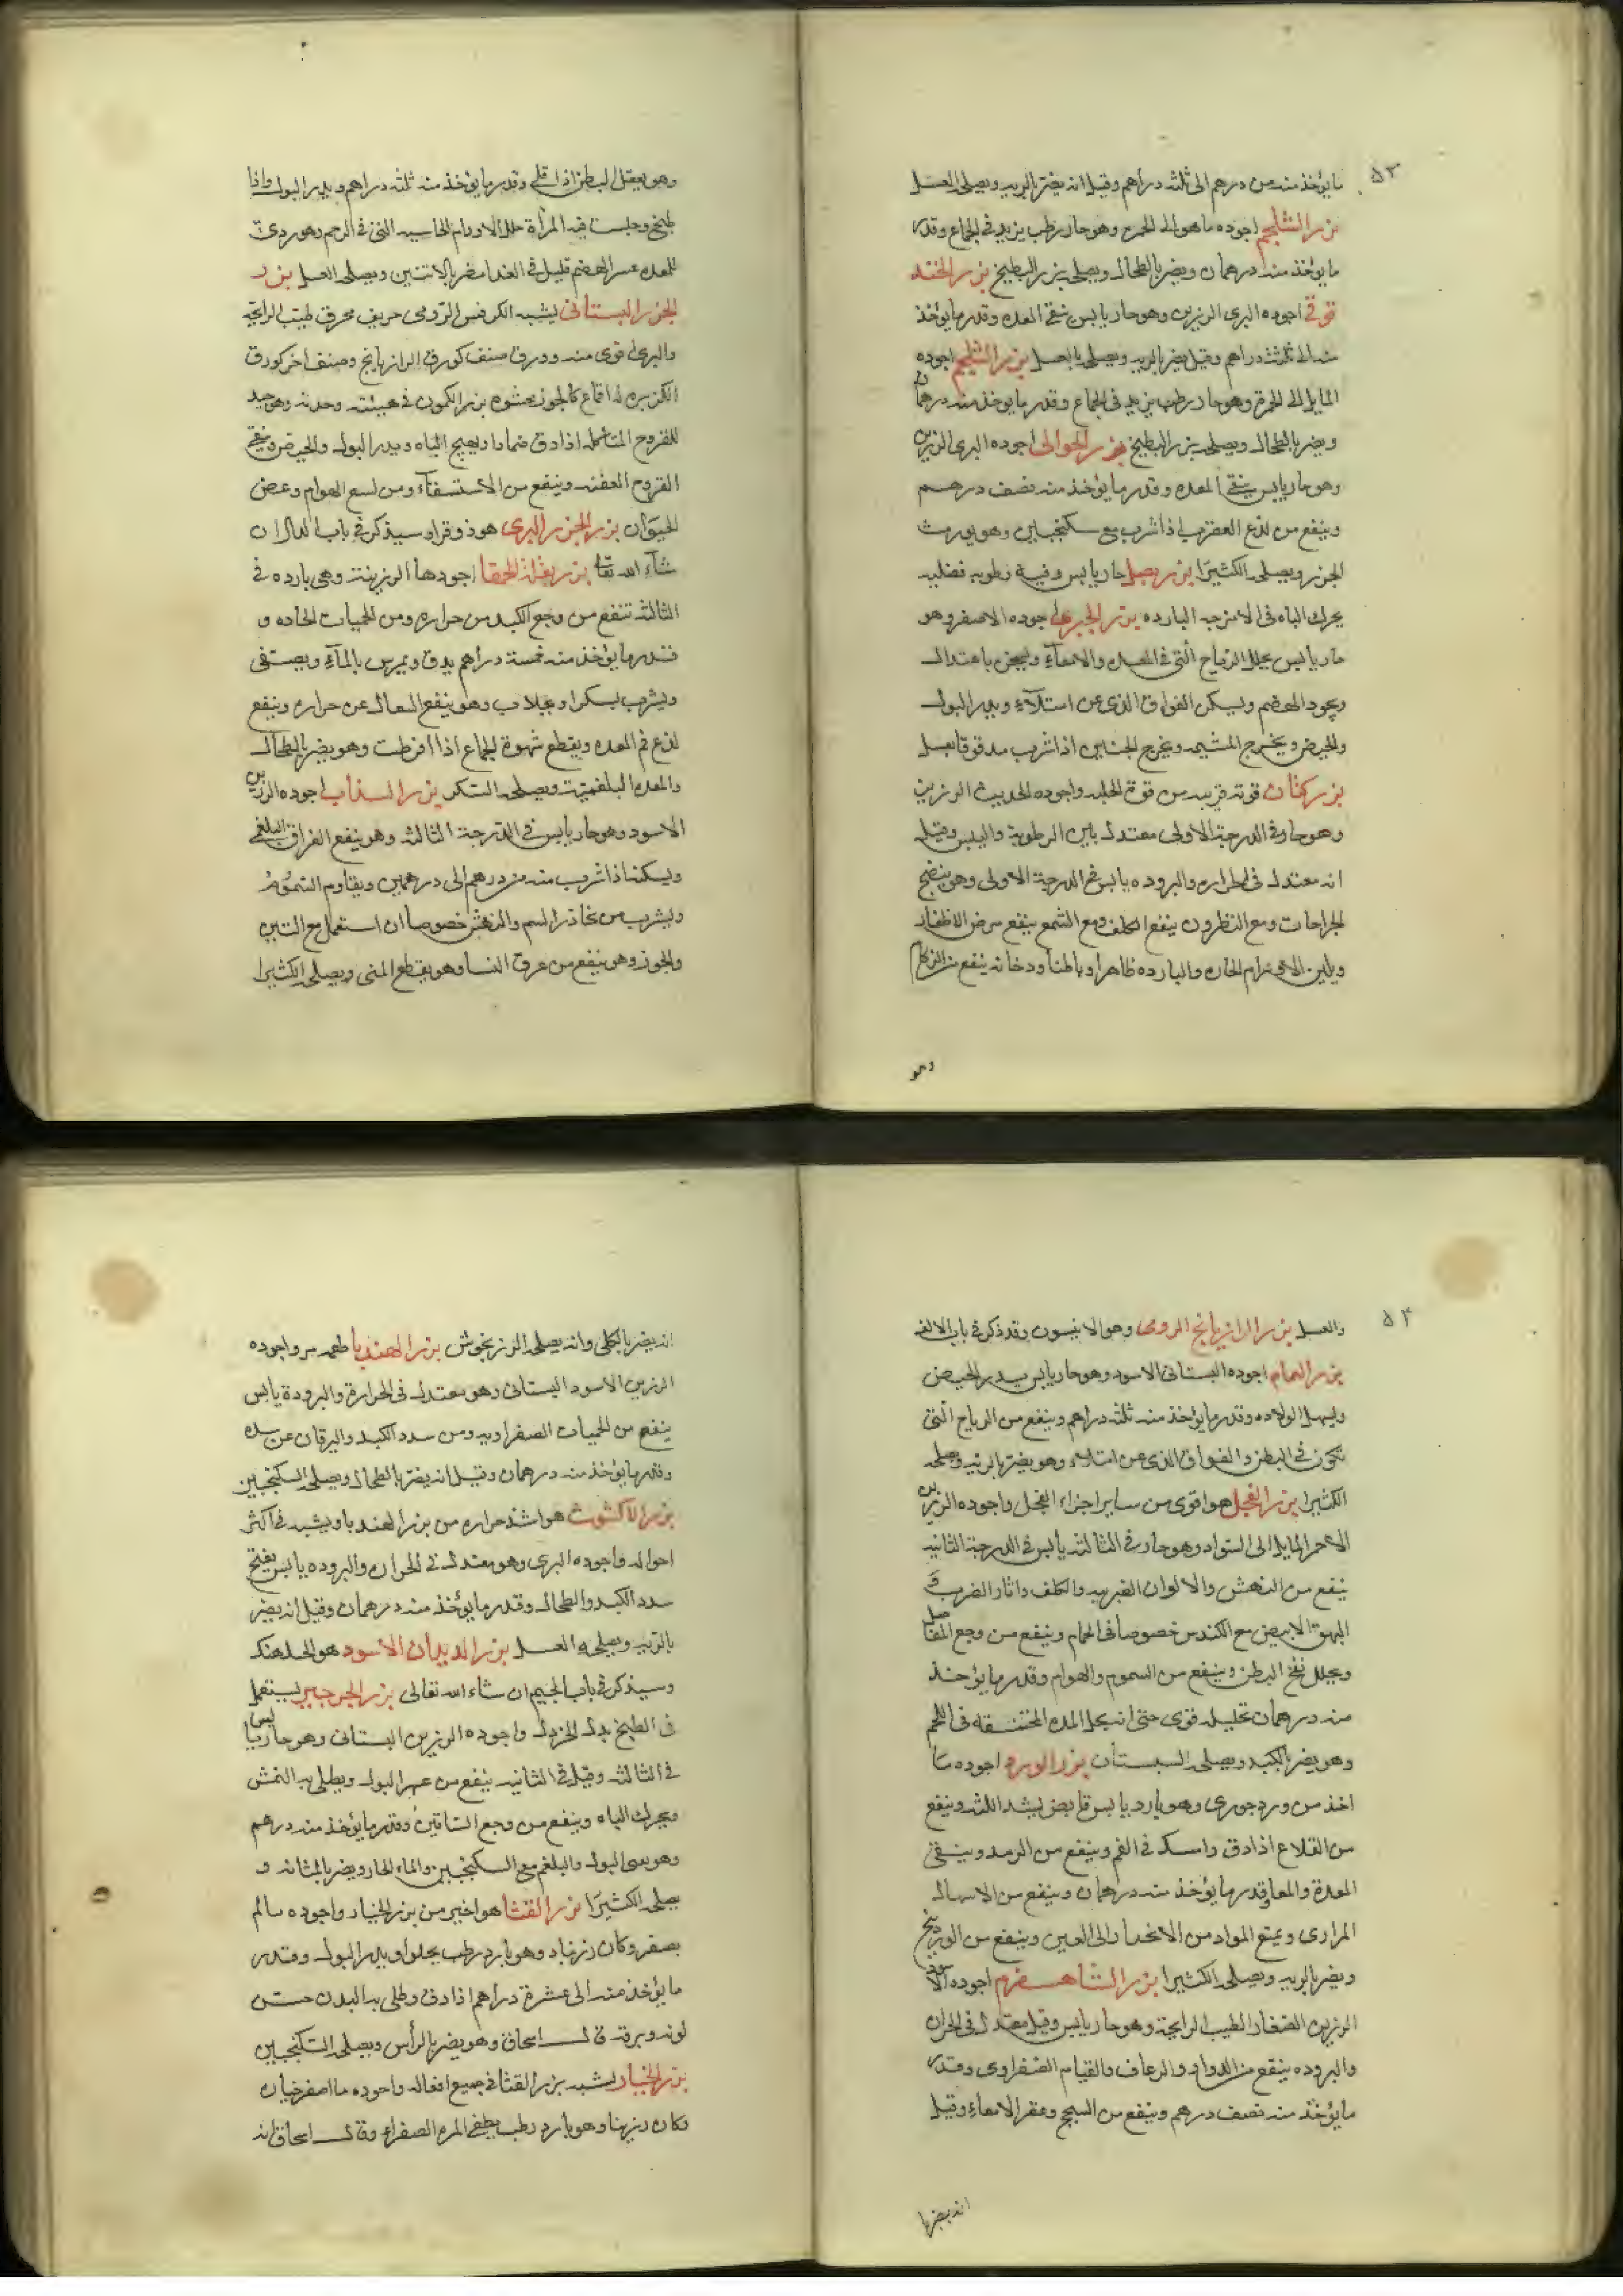 ٥٣
ما يؤخذ منه من درهم الى ثلثه دراهم وقيل انه يضر بالريه ويصلحه العسل
بزر الشلجم اجوده ما هو الى الحمره وهو حار رطب يزيد في الجماع وقدر
ما يؤخذ منه درهمان ويضر بالطحال ويصلحه بزر البطيخ بزر الحند
قوقى اجوده البرى الرزين وهو حار يابس ينقى المعده وقدر ما يؤخذ
منه الى ثلاثه دراهم وقيل يضر بالريه ويصلح بالعسل بزر الشلجم اجوده
المايل الى الحمرة وهو حار رطب يزيد فى الجماع وقدر ما يؤخذ منه درهمان
ويضر بالطحال ويصلحه بزر البطيخ بزر الحوالى اجوده البرى الرزين
وهو حار يابس ينقى المعده وقدر ما يؤخذ منه نصف درهم
وينفع من لذع العقرب اذا شرب مع سكنجبين وهو يورث
الجزر ويصلحه الكثيرا بزر بصل حار يابس وفيه رطوبه فضليه
يحرك الباه فى الامزجه البارده بزر اجوده الاصفر وهو
حار يابس يحلل الرياح التى فى المعده والامعآء ويسخن باعتدال
ويجود الهضم ويسكن الفواق الذى عن امتلآء ويدر البول
والحيض ويخرج المشيمه ويخرج الجنين اذا شرب مدقوقا بعسل
بزر كتان قوته قريبه من قوة الحلبه واجوده الحديث الرزين
وهو حار فى الدرجة الاولى معتدل بين الرطوبة واليبس وقيل
انه معتدل فى الحراره والبروده يابس فى الدرجة الاولى وهو ينضج
الجراحات ومع النطرون ينفع الكلف ومع الشمع ينفع من مرض الاظفار
ويلين الاورام الحاره والبارده ظاهرا وباطنا ودخانه ينفع من الزكام
وهو
وهو يعقل البطن اذا قلى وقدر ما يؤخذ منه ثلثه دراهم ويدر البول واذا
طبخ وجلست فيه المرأة حلل الاورام الحاسيه التى فى الرحم وهو ردئ
للمعده عسر الهضم قليل فى الغذا مضر بالانثيين ويصلحه العسل بزر
الجزر البستانى يشبه الكرفس الرومى حريف محرق طيب الرايحه
والبرى اقوى منه وورق صنف كورق الرازيانج وصنف اخر كورق
الكزبره له اقماع كالجوز محشوه بزر الكمون فى هيئته وحدته وهو جيد
للقروح المتاكله اذا دق ضمادا ويهيج الباه ويدر البول والحيض وينقى
القروح العفنه وينفع من الاستسقآء ومن لسع الهوام وعض
الحيوان بزر الجزر البرى هو ذوقوا وسيذكر فى باب الدال ان
شآء الله تعا بزر بقلة الحمقا اجودها الرزينة وهى بارده فى
الثالثه تنفع من وجع الكبد من حراره ومن الحميات الحاده و
قدر ما يؤخذ منه خمسة دراهم يدق ويمرس بالمآء ويصفى
ويشرب بسكر او بجلاب وهو ينفع السعال عن حراره وينفع
لذع فم المعده ويقطع شهوة الجماع اذا افرطت وهو يضر بالطحال
والمعده البلغمية ويصلحه السكر بزر السذاب اجوده الرزين
الاسود وهو حار يابس فى الدرجة الثالثه وهو ينفع الفواق البلغمى
ويسكنه اذا شرب منه من درهم الى درهمين ويقاوم السموم
ويشرب من يحاذر السم والنهش خصوصا ان استعمل مع التين
والجوز وهو ينفع من عرق النسا وهو يقطع المنى ويصلحه الكثيرا
٥٤
والعسل بزر الرازيانج الرومى وهو الانيسون وقد ذكر فى باب الالف
بزر النمام اجوده البستانى الاسود وهو حار يابس يدر الحيض
ويسهل الولاده وقدر ما يؤخذ منه ثلثه دراهم وينفع من الرياح التى
تكون فى البطن والفواق الذى عن امتلاء وهو يضر بالريه ويصلحه
الكثيرا بزر الفجل هو اقوى من ساير اجزاء الفجل واجوده الرزين
الاحمر المايل الى السواد وهو حار فى الثالثه يابس فى الدرجة الثانيه
ينفع من النهش والالوان الغريبه والكلف واثار الضرب و
البهق الابيض مع الكندس خصوصا فى الحمام وينفع من وجع المفاصل
ويحلل نفخ البطن وينفع من السموم والهوام وقدر ما يؤخذ
منه درهمان تحليله قوى حتى انه يحلل المده المختنقه فى اللحم
وهو يضر بالكبد ويصلحه السبستان بزر الورد اجوده ما
اخذ من ورد جورى وهو بارد يابس قابض يشد اللثه وينفع
من القلاع اذا دق وامسك فى الفم وينفع من الرمد وينقى
المعدة والمعا وقدر ما يؤخذ منه درهمان وينفع من الاسهال
المرارى ويمنع المواد من الانحدار الى العين وينفع من الوردينج
ويضر بالريه ويصلحه الكثيرا بزر الشاهسفرم اجوده الاسود
الرزين الصغار الطيب الرايحة وهو حار يابس وقيل معتدل فى الحراره
والبروده ينفع من الدوار والرعاف والقيام الصفراوى وقدر
ما يؤخذ منه نصف درهم وينفع من السحج وعقر الامعاء وقيل
انه يضر با
انه يضر بالكلى وانه يصلحه المرزنجوش بزر الهندبا طعمه مر واجوده
الرزين الاسود البستانى وهو معتدل فى الحرارة والبرودة يابس
ينفع من الحميات الصفراويه ومن سدد الكبد واليرقان عن سده
وقدر ما يؤخذ منه درهمان وقيل انه يضر بالطحال ويصلحه السكنجبين
بزر الاكشوث هو اشد حراره من بزر الهندبا ويشبه فى اكثر
احواله واجوده البرى وهو معتدل فى الحراره والبروده يابس يفتح
سدد الكبد والطحال وقدر ما يؤخذ منه درهمان وقيل انه يضر
بالريه ويصلحه العسل بزر الديدان الاسود هو الجلهنك
وسيذكر فى باب الجيم ان شاء الله تعالى بزر الجرجير يستعمل
فى الطبيخ بدل الخردل واجوده الرزين البستانى وهو حار يابس
فى الثالثه وقيل فى الثانيه ينفع من عسر البول ويطلى به النمش
ويحرك الباه وينفع من وجع الساقين وقدر ما يؤخذ منه درهم
وهو البول والبلغم مع السكنجبين والماء الحار ويضر بالمثانه و
يصلحه الكثيرا بزر القثا هو اخير من بزر الخيار واجوده ما لم
يصفر وكان وهو بارد رطب يجلو ويدر البول وقدر
ما يؤخذ منه الى عشرة دراهم اذا دق وطلى به البدن حسن
لونه وبرقه قال اسحاق وهو يضر بالرأس ويصلحه السكنجبين
بزر الخيار يشبه بزر القثا فى جميع افعاله واجوده ما اصفر خياره
وكان رزينا وهو بارد رطب يطفى المره الصفراء وقال اسحاق انه